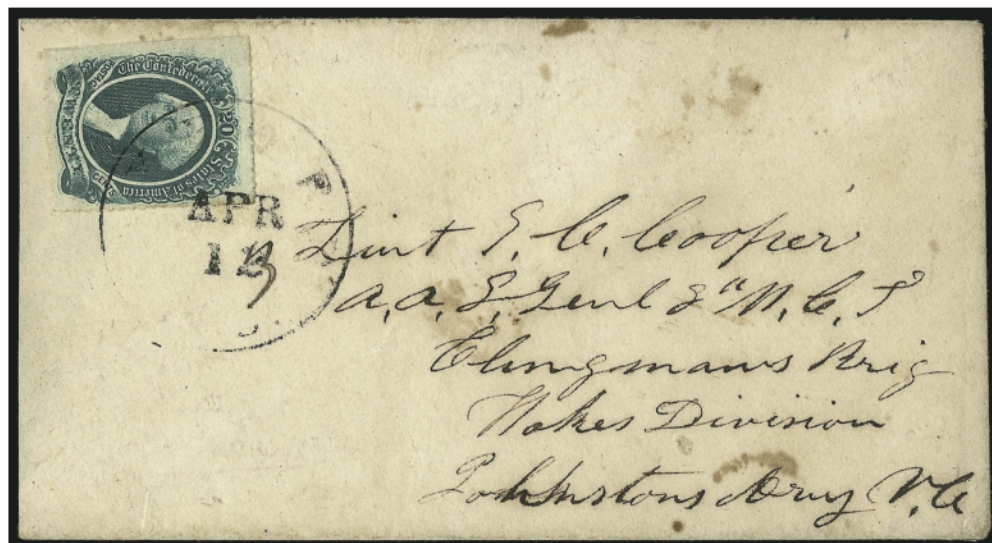 The Confederate States of America
20
APR
12
3
Lieut E. C. Cooper
A. A. I. Genl 8" N. C. T
Clingmans Brig
Hokes Division
Johnstons Army N. C